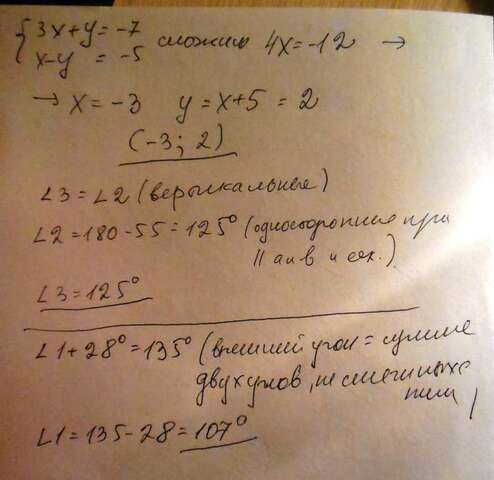 { 3x+y=-7
x-y = -5 сложим 4x=-12 →
→ x = -3 y = x+5 = 2
(-3; 2)
∠3 = ∠2 (вертикальные)
∠2 = 180-55 = 125° (односторонние при
|| a и b и сек.)
∠3 = 125°
∠1 + 28° = 135° (внешний угол = сумме
двух углов, не смежных с
ним)
∠1 = 135 - 28 = 107°